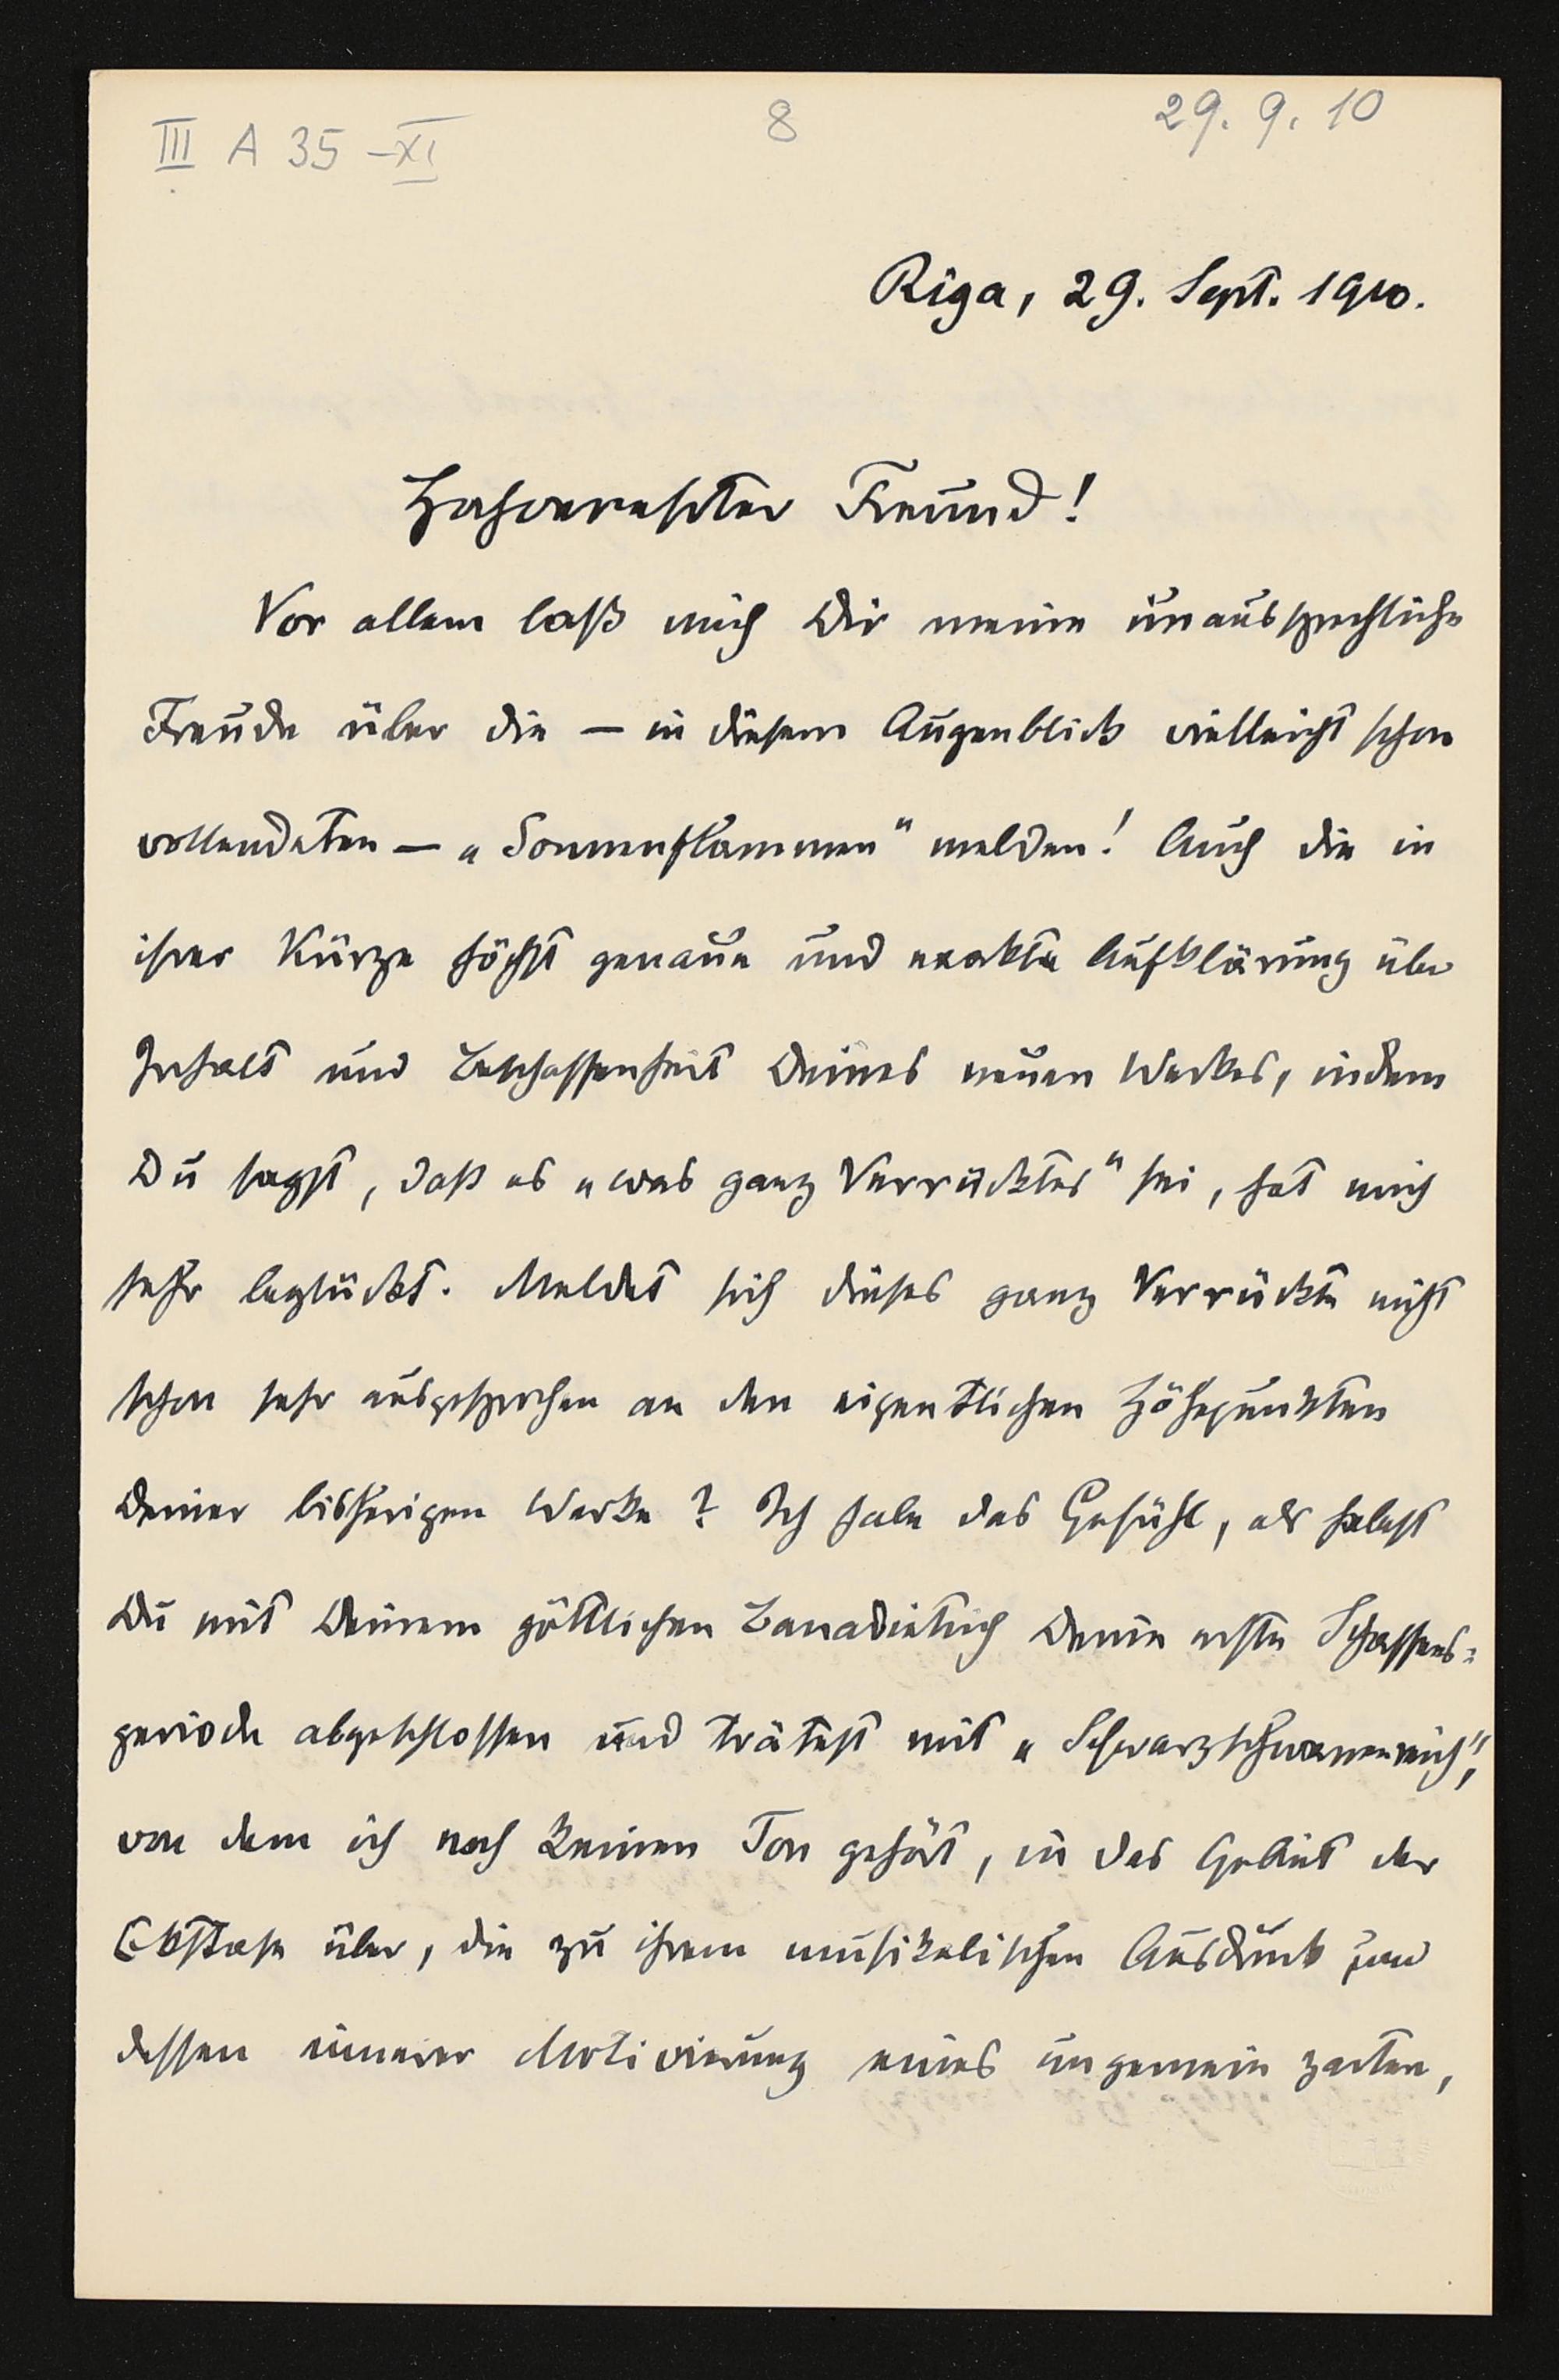 III A 35 – XI
8
29. 9. 10
Riga, 29. Sept. 1910.
Hochverehrter Freund!
Vor allem laß mich Dir meine unaussprechliche
Freude über die – in diesem Augenblick vielleicht schon
vollendeten – „Sonnenflammen" melden! Auch die in
ihrer Kürze höchst genaue und exakte Aufklärung über
Inhalt und Beschaffenheit Deines neuen Werkes, indem
Du sagst, daß es „was ganz Verrücktes" sei, hat mich
sehr beglückt. Meldet sich dieses ganz Verrückte nicht
schon sehr ausgesprochen an den eigentlichen Höhepunkten
Deiner bisherigen Werke? Ich habe das Gefühl, als habest
Du mit Deinem göttlichen Banadietrich Deine erste Schaffens-
periode abgeschlossen und trätest mit „Schwarzschwanenreich",
von dem ich noch keinen Ton gehört, in das Gebiet der
Ekstase über, die zu ihrem musikalischen Ausdruck und
dessen innerer Motivierung eines ungemein zarten,